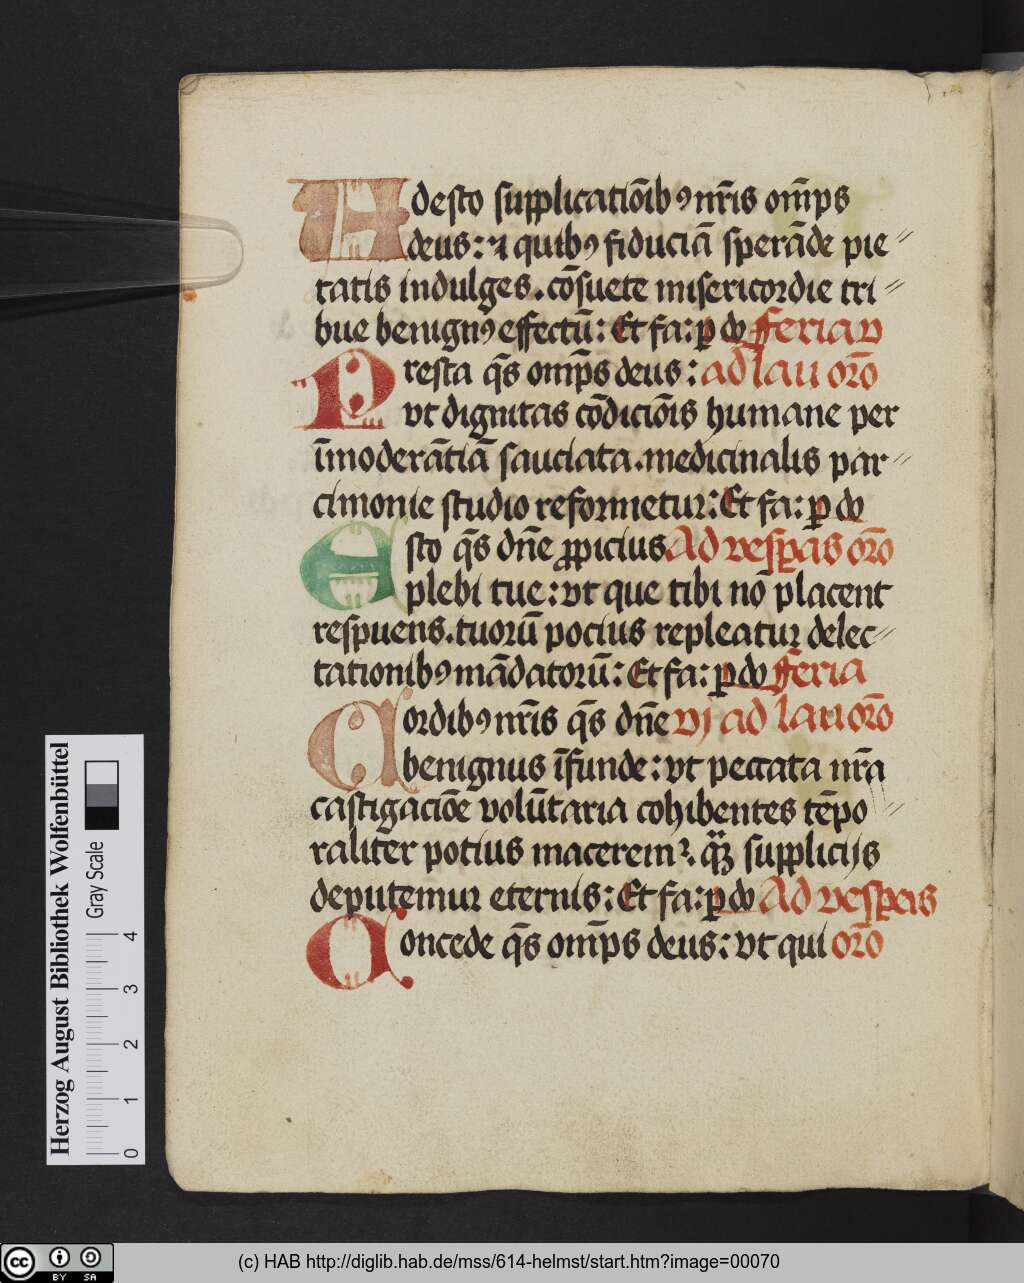 Adesto supplicatiōibꝰ nr̄is om̄ps
deus: ⁊ quibꝰ fiduciā sperāde pie⸗
tatis indulges. cōsuete misericordie tri⸗
bue benignꝰ effectū: Et fa: ꝑ do feria v
Presta q̄s om̄ps deus: ad lau oro̅
vt dignitas cōdiciōis humane per
īmoderātiā sauciata. medicinalis par⸗
cimonie studio reformetur: Et fa: ꝑ do
Esto q̄s dn̄e ꝓpicius Ad vesꝑas oro̅
plebi tue: vt que tibi nō placent
respuens. tuorū pocius repleatur delec⸗
tationibꝰ mādatorū: Et fa: ꝑ do feria
Cordibꝰ nr̄is q̄s dn̄e vj ad lau oro̅
benignus īfunde: vt peccata nr̄a
castigaciōe volūtaria cohibentes tēpo⸗
raliter potius macerem̉. qꝫ supplicijs
deputemur eternis: Et fa: ꝑ do Ad vesꝑas
Concede q̄s om̄ps deus: vt qui oro̅
Herzog August Bibliothek Wolfenbüttel
Gray Scale
0 1 2 3 4
cc BY SA
(c) HAB http://diglib.hab.de/mss/614-helmst/start.htm?image=00070